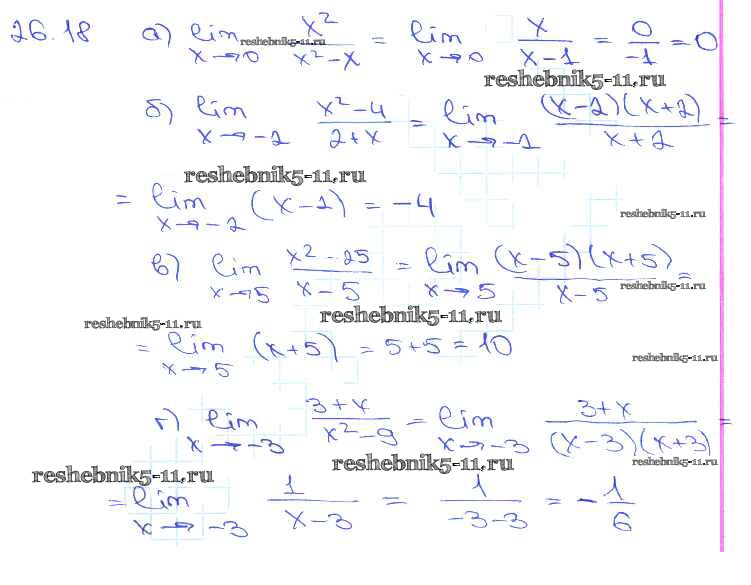 26.18 а) lim x→0 x²/(x²-x) = lim x→0 x/(x-1) = 0/-1 = 0
reshebnik5-11.ru
reshebnik5-11.ru
б) lim x→-2 (x²-4)/(2+x) = lim x→-2 ((x-2)(x+2))/(x+2) =
reshebnik5-11.ru
= lim x→-2 (x-2) = -4
reshebnik5-11.ru
в) lim x→5 (x²-25)/(x-5) = lim x→5 ((x-5)(x+5))/(x-5) =
reshebnik5-11.ru
reshebnik5-11.ru
reshebnik5-11.ru
= lim x→5 (x+5) = 5+5 = 10
reshebnik5-11.ru
г) lim x→-3 (3+x)/(x²-9) = lim x→-3 (3+x)/((x-3)(x+3)) =
reshebnik5-11.ru
reshebnik5-11.ru
reshebnik5-11.ru
= lim x→-3 1/(x-3) = 1/(-3-3) = -1/6